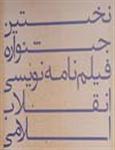 نخستین
جشنواره
فیلم‌نامه‌نویسی
انقلاب
اسلامی